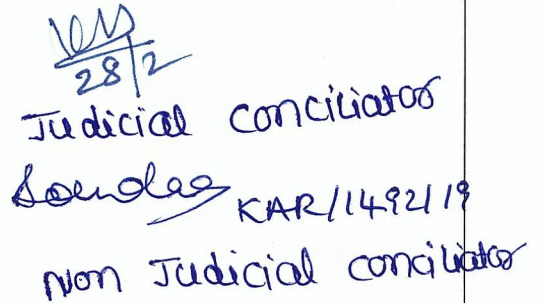 28/2
Judicial conciliator
KAR/1492/19
Non Judicial conciliator